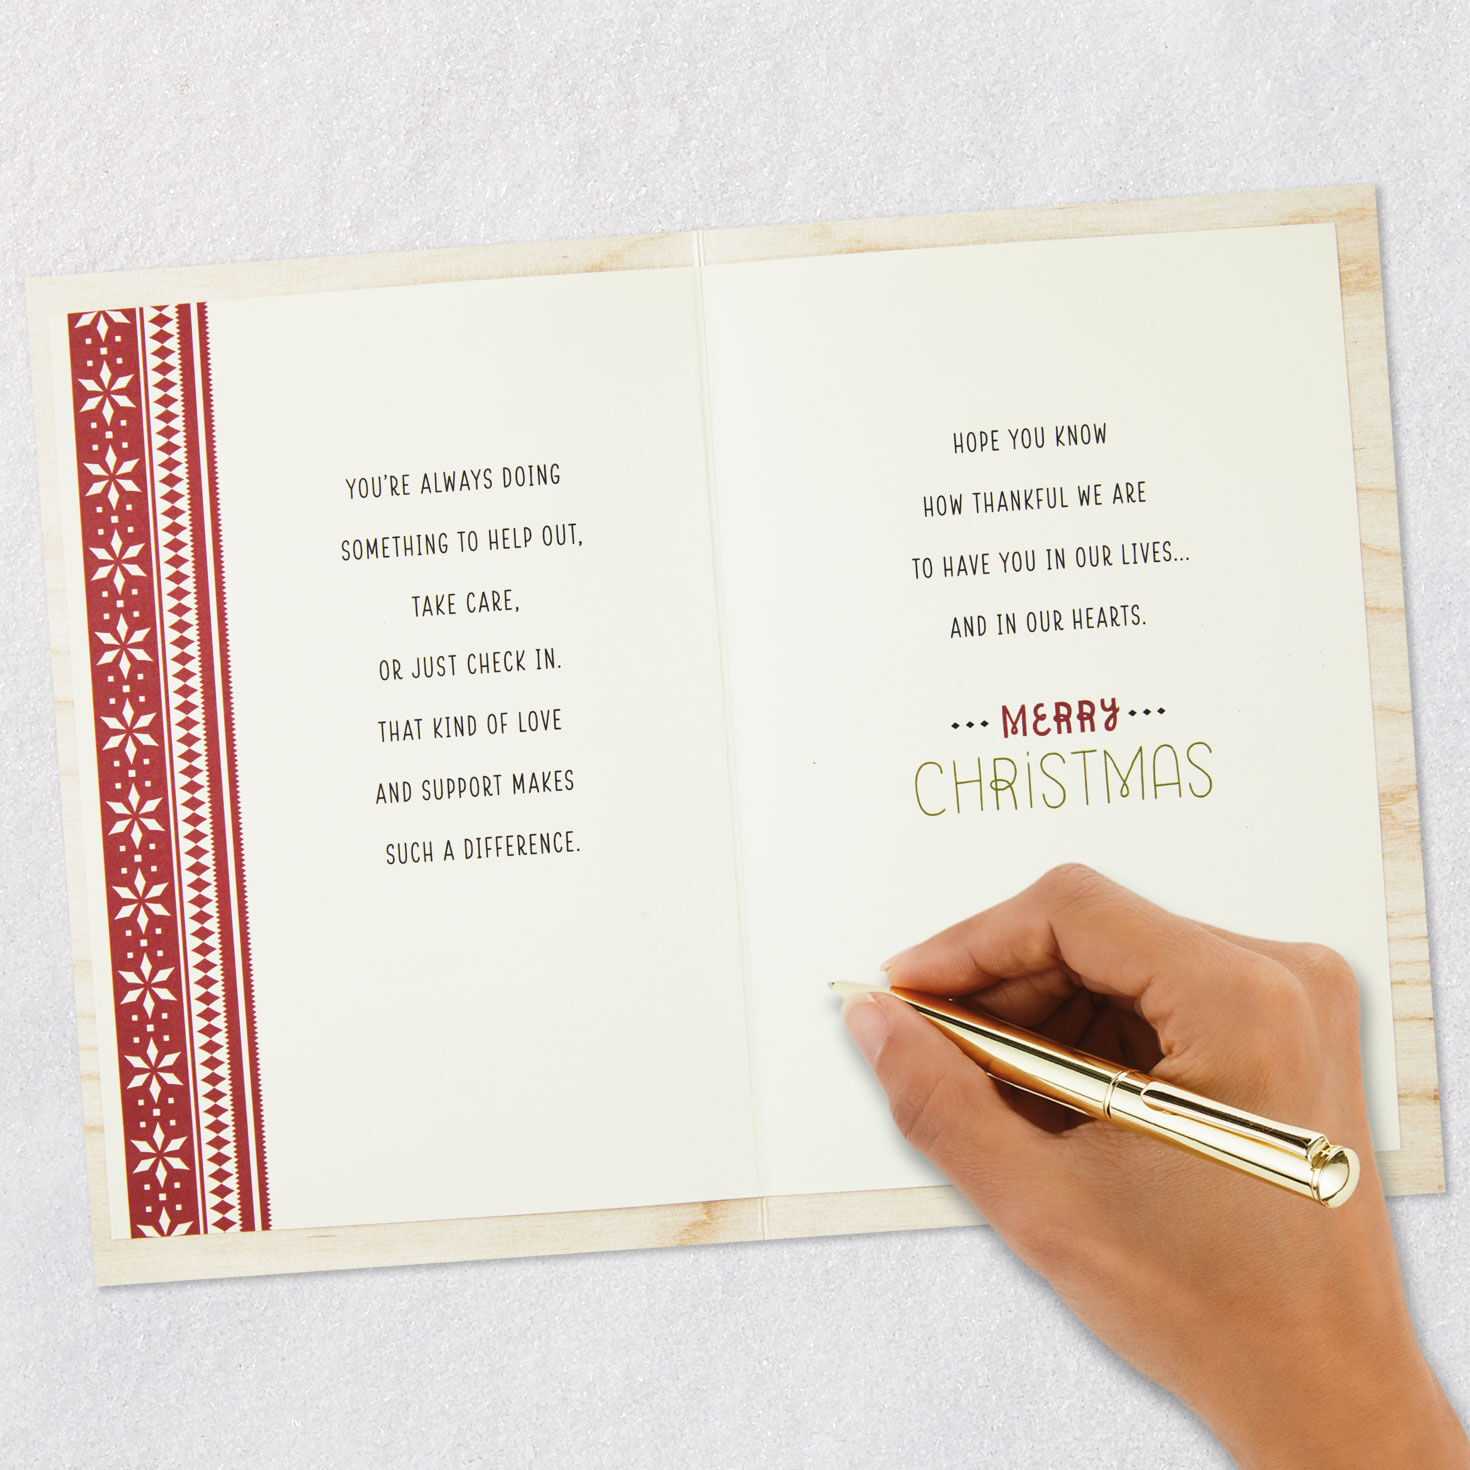 YOU'RE ALWAYS DOING
SOMETHING TO HELP OUT,
TAKE CARE,
OR JUST CHECK IN.
THAT KIND OF LOVE
AND SUPPORT MAKES
SUCH A DIFFERENCE.
HOPE YOU KNOW
HOW THANKFUL WE ARE
TO HAVE YOU IN OUR LIVES...
AND IN OUR HEARTS.
MERRY
CHRiSTMAS